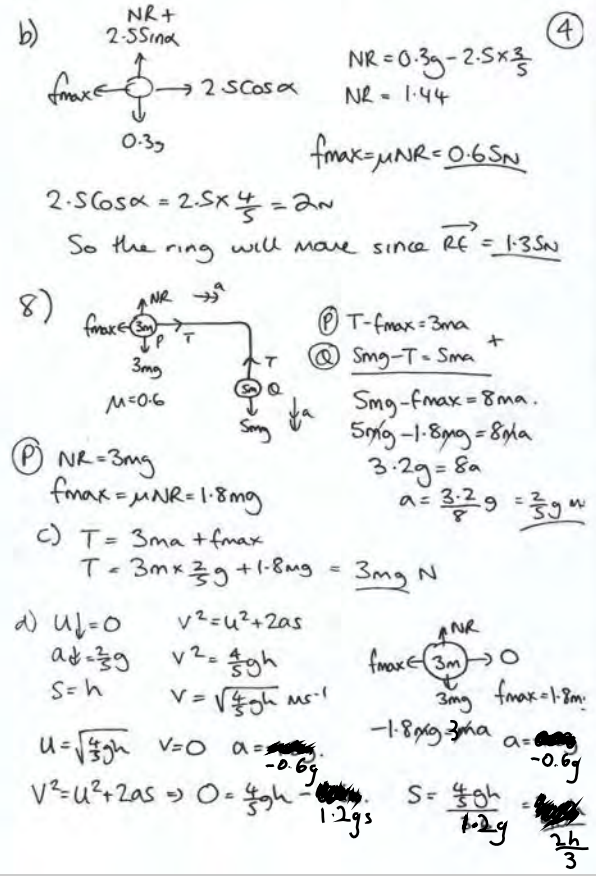 4
b)
NR +
2.5Sinα
fmax
2.5Cosα
0.3g
NR = 0.3g - 2.5 × 3/5
NR = 1.44
fmax = μNR = 0.65N
2.5Cosα = 2.5 × 4/5 = 2N
So the ring will move since RF = 1.35N
8)
NR
a
fmax
3m
P
T
3mg
μ = 0.6
T
5m
Q
5mg
a
P T - fmax = 3ma
Q 5mg - T = 5ma
+
5mg - fmax = 8ma.
5mg - 1.8mg = 8ma
3.2g = 8a
a = 3.2/8 g = 2/5 g
P NR = 3mg
fmax = μNR = 1.8mg
c) T = 3ma + fmax
T = 3m × 2/5 g + 1.8mg = 3mg N
d) U↓ = 0
V² = u² + 2as
a↓ = 2/5 g
V² = 4/5 gh
S = h
V = √4/5 gh ms⁻¹
NR
fmax
3m
0
3mg
fmax = 1.8m
-1.8mg = 3ma
a =
-0.6g
U = √4/5 gh
V = 0
a =
-0.6g
V² = U² + 2as ⇒ 0 = 4/5 gh -
1.2gs
S = 4/5 gh / 1.2g =
2h/3